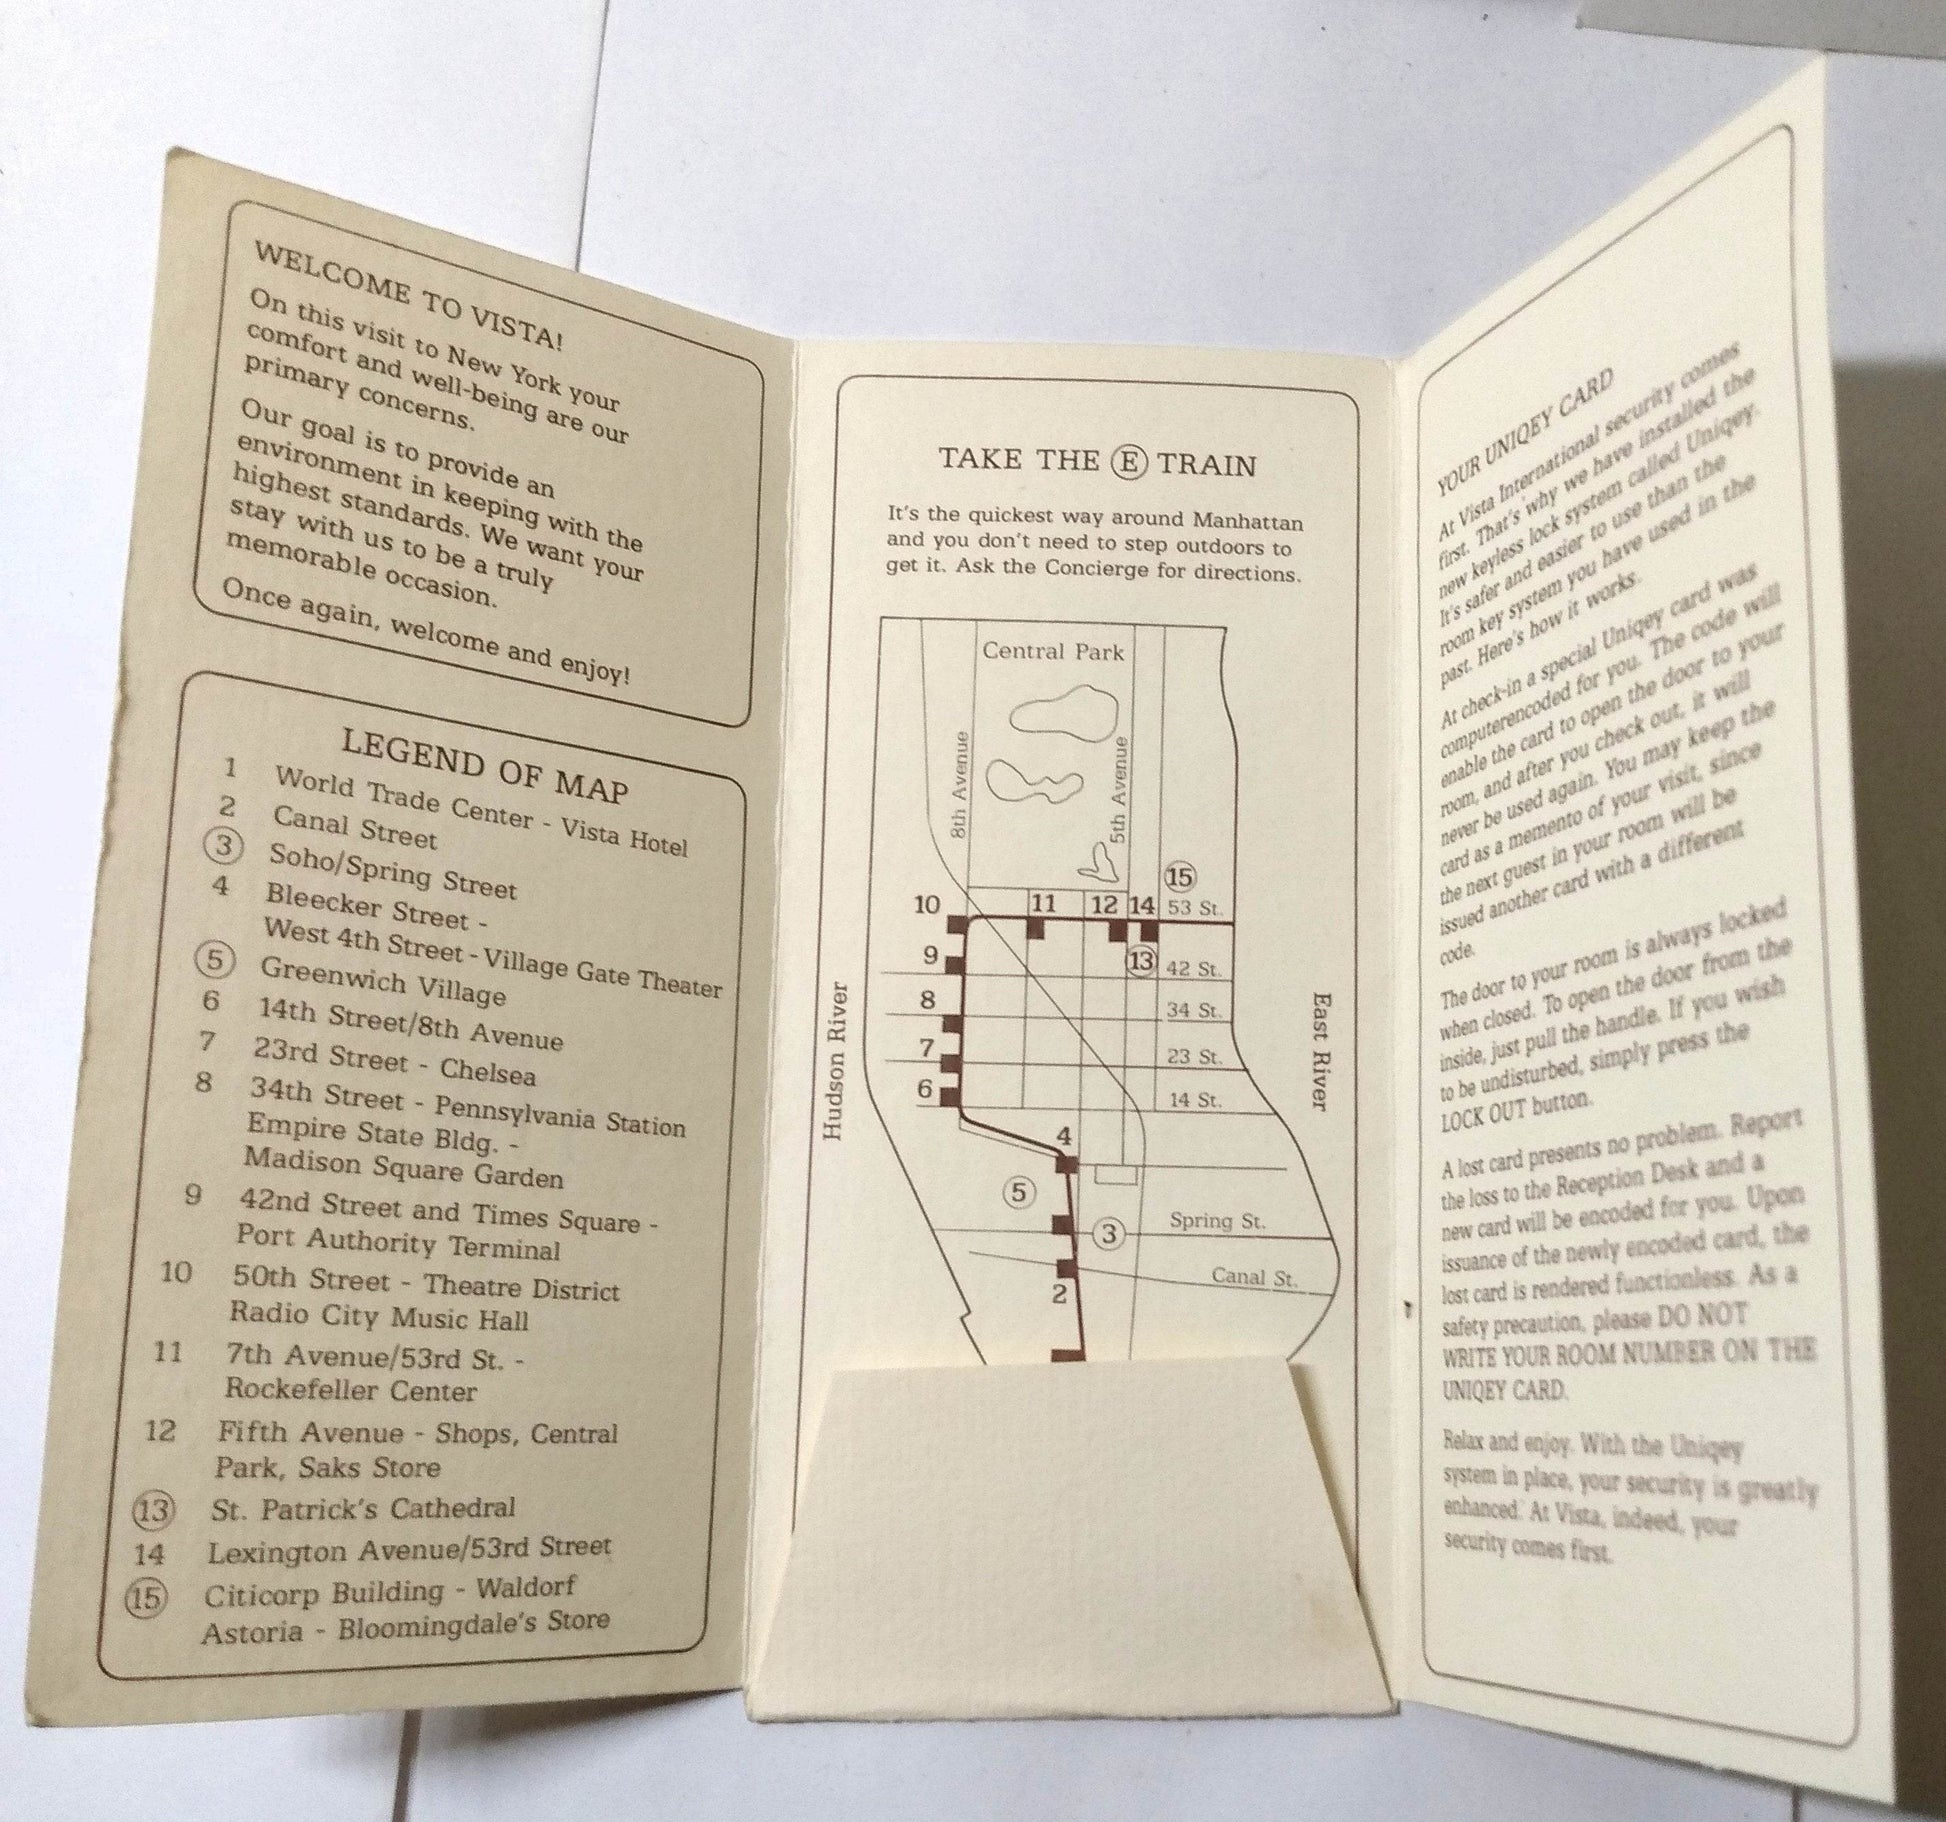 WELCOME TO VISTA!
On this visit to New York your
comfort and well-being are our
primary concerns.
Our goal is to provide an
environment in keeping with the
highest standards. We want your
stay with us to be a truly
memorable occasion.
Once again, welcome and enjoy!
LEGEND OF MAP
1 World Trade Center - Vista Hotel
2 Canal Street
3 Soho/Spring Street
4 Bleecker Street -
West 4th Street - Village Gate Theater
5 Greenwich Village
6 14th Street/8th Avenue
7 23rd Street - Chelsea
8 34th Street - Pennsylvania Station
Empire State Bldg. -
Madison Square Garden
9 42nd Street and Times Square -
Port Authority Terminal
10 50th Street - Theatre District
Radio City Music Hall
11 7th Avenue/53rd St. -
Rockefeller Center
12 Fifth Avenue - Shops, Central
Park, Saks Store
13 St. Patrick's Cathedral
14 Lexington Avenue/53rd Street
15 Citicorp Building - Waldorf
Astoria - Bloomingdale's Store
TAKE THE E TRAIN
It's the quickest way around Manhattan
and you don't need to step outdoors to
get it. Ask the Concierge for directions.
Central Park
8th Avenue
5th Avenue
15
10 11 12 14 53 St.
9 13 42 St.
8 34 St.
7 23 St.
6 14 St.
Hudson River
East River
4
5
3 Spring St.
Canal St.
2
YOUR UNIQEY CARD
At Vista International security comes
first. That's why we have installed the
new keyless lock system called Uniqey.
It's safer and easier to use than the
room key system you have used in the
past. Here's how it works.
At check-in a special Uniqey card was
computerencoded for you. The code will
enable the card to open the door to your
room, and after you check out, it will
never be used again. You may keep the
card as a memento of your visit, since
the next guest in your room will be
issued another card with a different
code.
The door to your room is always locked
when closed. To open the door from the
inside, just pull the handle. If you wish
to be undisturbed, simply press the
LOCK OUT button.
A lost card presents no problem. Report
the loss to the Reception Desk and a
new card will be encoded for you. Upon
issuance of the newly encoded card, the
lost card is rendered functionless. As a
safety precaution, please DO NOT
WRITE YOUR ROOM NUMBER ON THE
UNIQEY CARD.
Relax and enjoy. With the Uniqey
system in place, your security is greatly
enhanced. At Vista, indeed, your
security comes first.